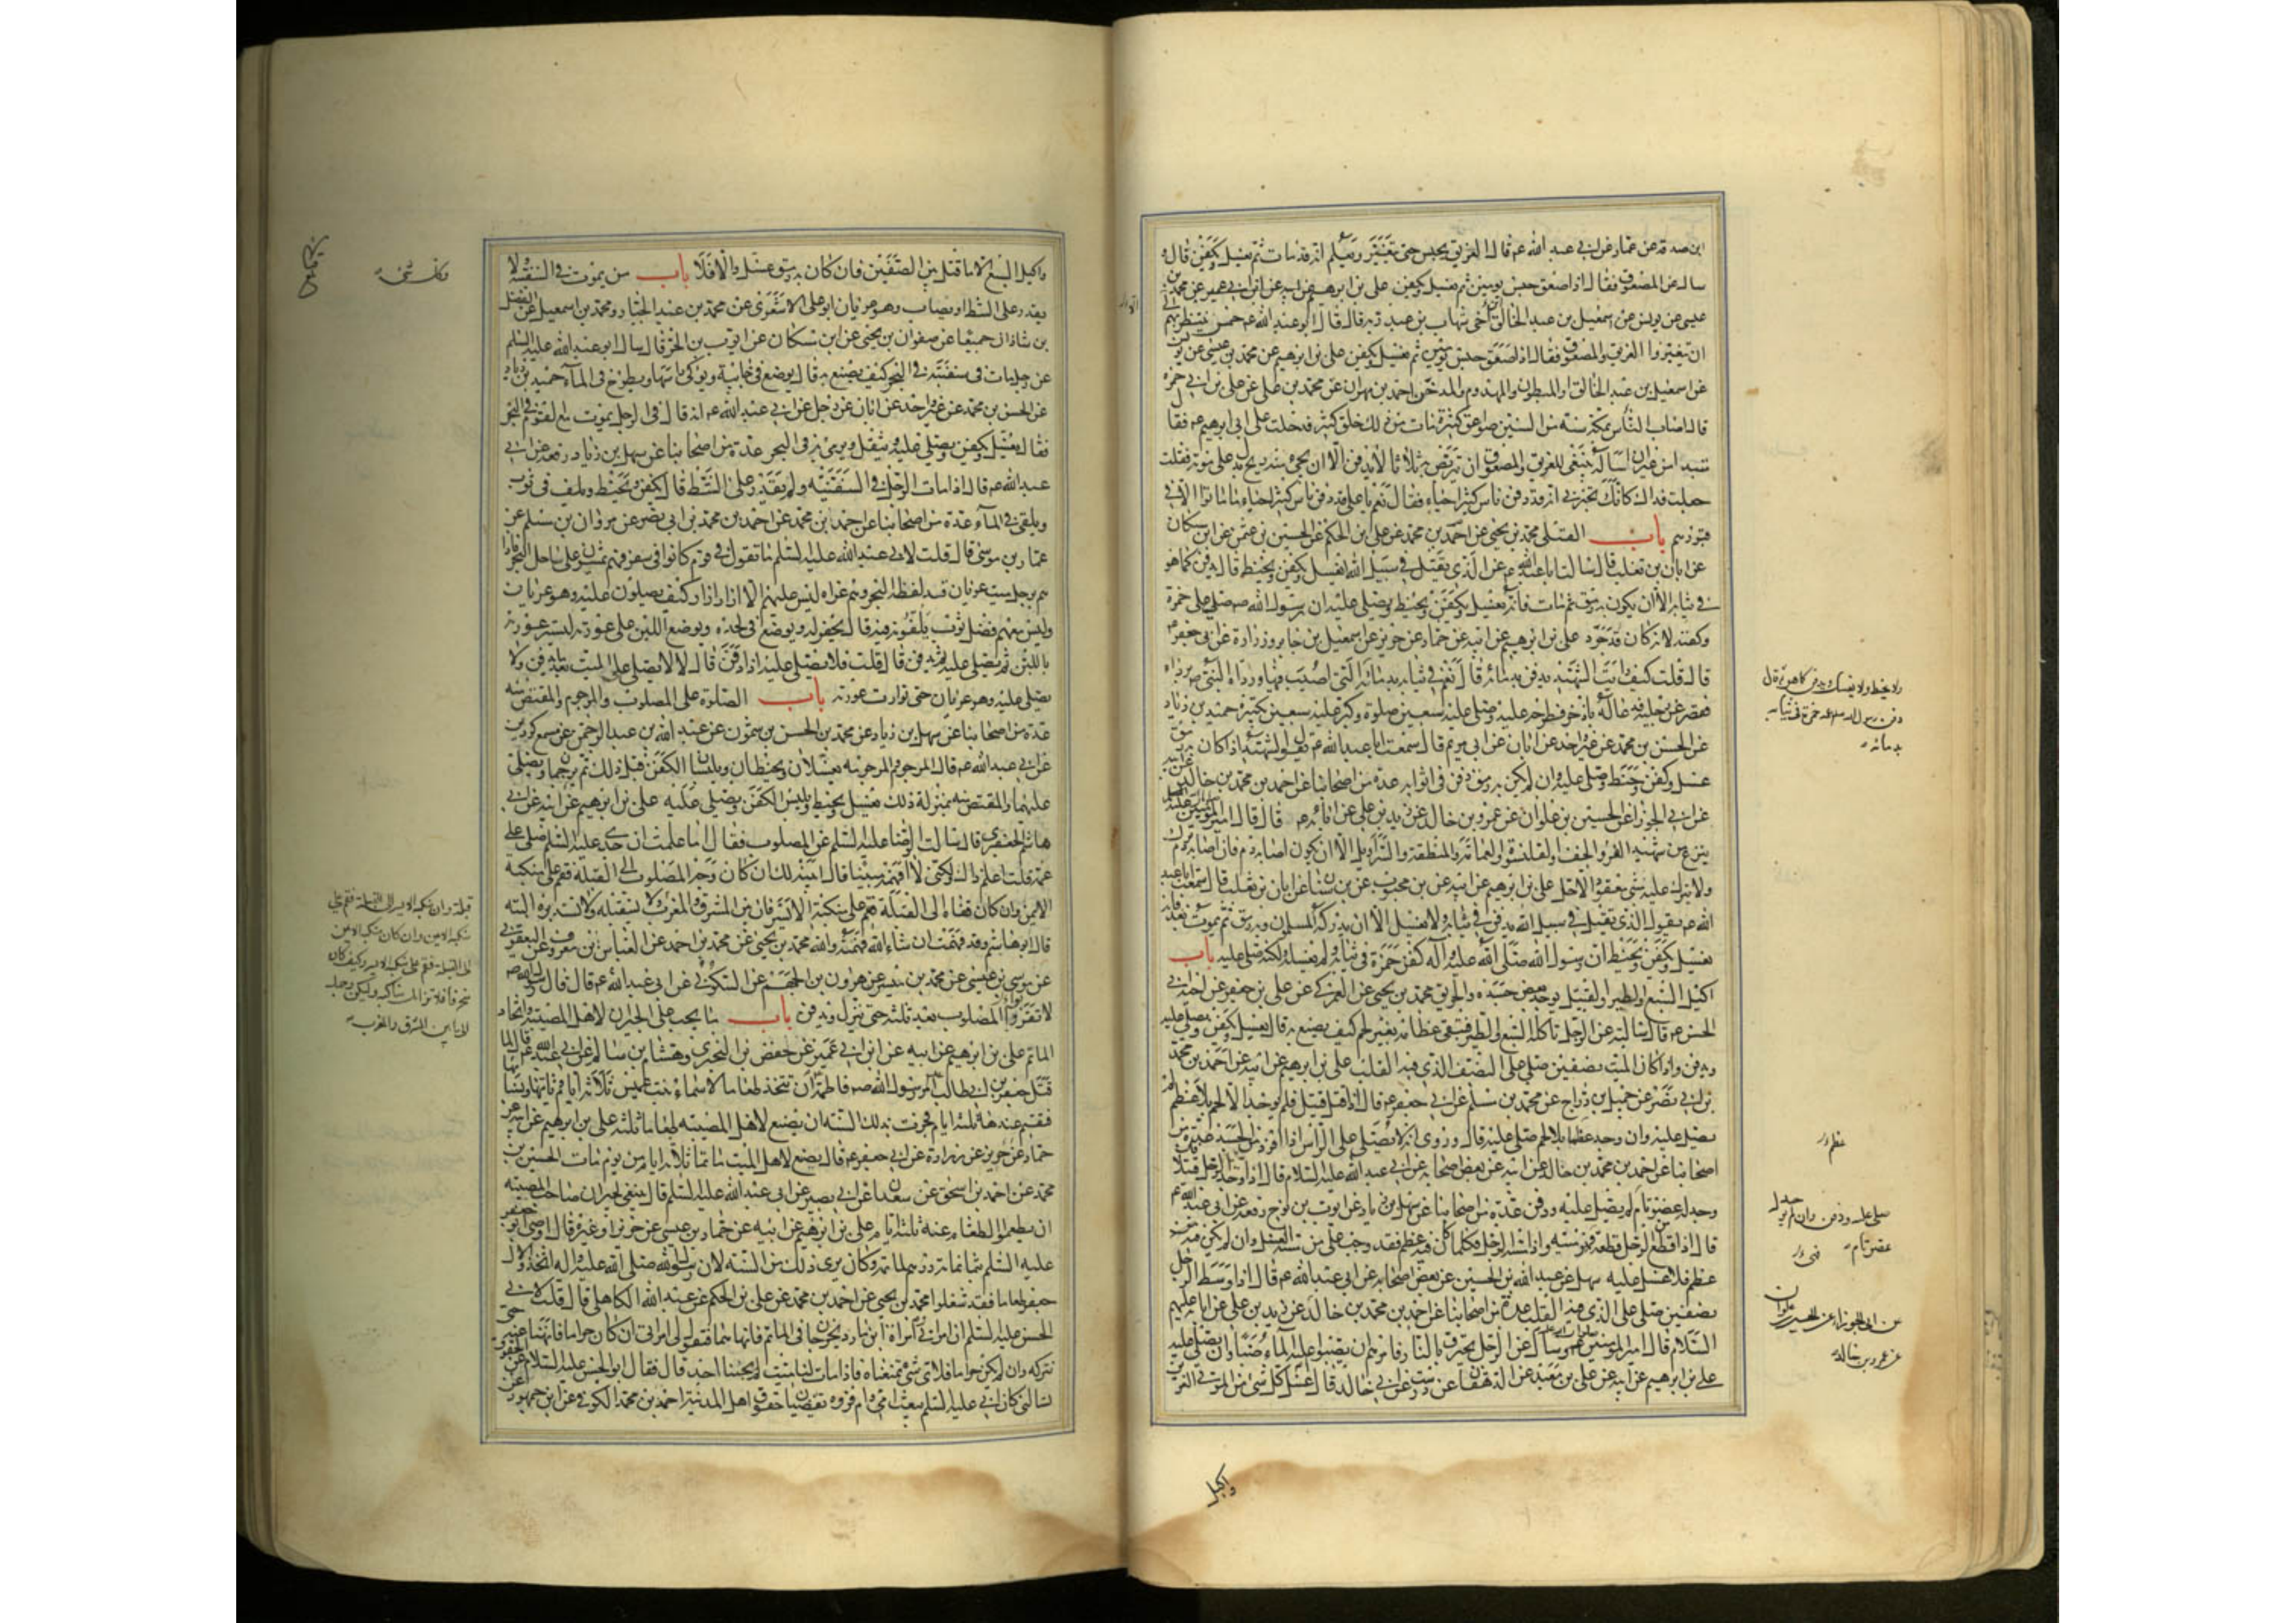 ابن صدقة عن عمار عن ابي عبد الله ع قال الغريق يحبس حتى يتغير ويعلم انه قد مات ثم يغسل ويكفن قال و
سالت عن المصعوق فقال اذا صعق حبس يومين ثم يغسل ويكفن علي بن ابرهيم عن ابيه عن ابن ابي عمير عن محمد بن
عيسى عن يونس عن اسمعيل بن عبد الخالق ابن اخي شهاب بن عبد ربه قال قال ابو عبد الله ع خمس ينتظر بهم الى
ان يتغيروا الغريق والمصعوق
عن اسمعيل بن عبد الخالق والمبطون والمهدوم والمدخن احمد بن مهران عن محمد بن علي عن علي بن ابي حمزة
قال اصاب الناس بمكة سنة من السنين صواعق كثيرة مات من ذلك خلق كثير فدخلت على ابي ابرهيم ع فقال
مبتدءا من غير ان اساله ينبغي للغريق والمصعوق ان يتربص به ثلاثا لا يدفن الا ان يجيء منه ريح يدل على موته فقلت
جعلت فداك كانك تخبرني انه قد دفن ناس كثير احياء فقال نعم يا علي قد دفن ناس كثير احياء ما ماتوا الا في
قبورهم باب القتلى محمد بن يحيى عن احمد بن محمد عن علي بن الحكم عن الحسين بن عثمن عن ابن مسكان
عن ابان بن تغلب قال سالت ابا عبد الله ع عن الذي يقتل في سبيل الله ايغسل ويكفن ويحنط قال يدفن كما هو
في ثيابه الا ان يكون به رمق ثم مات فانه يغسل ويكفن ويحنط ويصلى عليه ان رسول الله صم صلى على حمزة
وكفنه لانه كان قد جرد علي بن ابرهيم عن ابيه عن حماد عن حريز عن اسمعيل بن جابر وزرارة عن ابي جعفر ع
قال قلت كيف رايت الشهيد يدفن بدمائه قال نعم في ثيابه بدمائه
عن الحسن بن محمد عن غير واحد عن ابان عن ابي مريم قال سمعت ابا عبد الله ع يقول الشهيد اذا كان به رمق
غسل وكفن وحنط وصلي عليه وان لم يكن به رمق دفن في اثوابه عدة من اصحابنا عن احمد بن محمد بن خالد عن ابيه
عن ابي الجوزاء عن الحسين بن علوان عن عمرو بن خالد عن زيد بن علي عن ابائه ع قال قال امير المؤمنين
ينزع عن الشهيد الفرو والخف والقلنسوة والعمامة والمنطقة والسراويل الا ان يكون اصابه دم فان اصابه دم ترك
ولا يترك عليه شي معقود الا حل علي بن ابرهيم عن ابيه عن ابن محبوب عن ابن سنان عن ابان بن تغلب قال سمعت ابا عبد
الله ع يقول الذي يقتل في سبيل الله يدفن في ثيابه ولا يغسل الا ان يدركه المسلمون وبه رمق ثم يموت بعد فانه
يغسل ويكفن ويحنط ان رسول الله صلى الله عليه واله كفن حمزة في ثيابه ولم يغسله ولكنه صلى عليه باب
اكيل السبع والطير والقتيل يوجد بعض جسده والحريق محمد بن يحيى عن العمركي عن علي بن جعفر عن اخيه ابي
الحسن ع قال سالته عن الرجل ياكله السبع والطير فتبقى عظامه بغير لحم كيف يصنع به قال يغسل ويكفن ويصلى عليه
ويدفن واذا كان الميت نصفين صلي على النصف الذي فيه القلب علي بن ابرهيم عن ابيه عن احمد بن محمد
بن ابي نصر عن جميل بن دراج عن محمد بن مسلم عن ابي جعفر ع قال اذا قتل قتيل فلم يوجد الا لحم بلا عظم لم
يصل عليه وان وجد عظم بلا لحم صلي عليه قال وروي انه لا يصلى على الراس اذا افرد من الجسد عدة من
اصحابنا عن احمد بن محمد بن خالد عن ابيه عن بعض اصحابه عن ابي عبد الله عليه السلام قال اذا وجد الرجل قتيلا
وجد له عضو تام لم يصل عليه ودفن عدة من اصحابنا عن سهل بن زياد عن ايوب بن نوح رفعه عن ابي عبد الله ع
قال اذا قطع من الرجل قطعة
عظم فلا غسل عليه سهل عن عبد الله بن الحسين عن بعض اصحابه عن ابي عبد الله ع قال اذا وسط الرجل
نصفين صلي على الذي فيه القلب عدة من اصحابنا عن احمد بن محمد بن خالد عن زيد بن علي عن ابائه عليهم
السلام قال امير المؤمنين وسئل عن الرجل يحترق بالنار فامرهم ان يصبوا عليه الماء صبا وان يصلى عليه
علي بن ابرهيم عن ابيه عن علي بن معبد عن الدهقان عن درست عن ابي خالد قال غسل كل شي من الموتى الغريق
واكيل
ولا يحنط ولا يغسل ويدفن كما هو ثم قال
دفن رسول الله صم عمه حمزة في ثيابه
بدمائه
صلي عليه ودفن وان لم يوجد له
عضو تام
عن ابي الجوزاء عن الحسين بن علوان
عن عمرو بن خالد
واكيل السبع الا ما قتل بين الصفين فان كان به رمق غسل والا فلا باب من يموت في السفينة ولا
يقدر على الشط او يصاب وهو عريان ابو علي الاشعري عن محمد بن عبد الجبار ومحمد بن اسمعيل عن الفضل
بن شاذان جميعا عن صفوان بن يحيى عن ابن مسكان عن ايوب بن الحر قال سال ابو عبد الله عليه السلم
عن رجل مات في سفينة في البحر كيف يصنع به قال يوضع في خابية ويوكى راسها ويطرح في الماء حميد بن زياد
عن الحسن بن محمد عن غير واحد عن ابان عن رجل عن ابي عبد الله ع انه قال في الرجل يموت مع القوم في البحر
فقال يغسل ويكفن ويصلى عليه ويثقل ويرمى به في البحر عدة من اصحابنا عن سهل بن زياد رفعه عن ابي
عبد الله ع قال اذا مات الرجل في السفينة ولم يقدر على الشط قال يكفن ويحنط ويلف في ثوب
ويلقى في الماء عدة من اصحابنا عن احمد بن محمد عن احمد بن محمد بن ابي نصر عن مروان بن مسلم عن
عمار بن موسى قال قلت لابي عبد الله عليه السلم ما تقول في قوم كانوا في سفر فهم يمشون على ساحل البحر فاذا
هم برجل ميت عريان قد لفظه البحر وهم عراة ليس عليهم الا ازار كيف يصلون عليه وهو عريان
وليس معهم فضل ثوب يلفونه فيه قال يحفر له ويوضع في لحده ويوضع اللبن على عورته لستر عورته
باللبن ثم يصلى عليه ثم يدفن قال قلت فلا يصلى عليه اذا دفن قال لا لا يصلى على الميت بعد ما يدفن ولا
يصلى عليه وهو عريان حتى توارت عورته باب الصلوة على المصلوب والمرجوم والمقتص منه
عدة من اصحابنا عن سهل بن زياد عن محمد بن الحسن بن شمون عن عبد الله بن عبد الرحمن عن مسمع كردين
عن ابي عبد الله ع قال المرجوم والمرجومة يغسلان ويحنطان ويلبسان الكفن قبل ذلك ثم يرجمان ويصلى
عليهما والمقتص منه بمنزلة ذلك يغسل ويحنط ويلبس الكفن ويصلى عليه علي بن ابرهيم عن ابيه عن ابي
هاشم الجعفري قال سالت الرضا عليه السلم عن المصلوب فقال اما علمت ان جدي عليه السلم صلى على
عمه قلت اعلم ذاك ولكني لا افهمه مبينا قال ابينه لك ان كان وجه المصلوب الى القبلة فقم على منكبه
الايمن وان كان قفاه الى القبلة فقم على منكبه الايسر فان بين المشرق والمغرب ولا تستقبله ولا تستدبره البتة
قال ابو هاشم وقد فهمت ان شاء الله فهمته والله محمد بن يحيى عن محمد بن احمد عن العباس بن معروف عن اليعقوبي
عن موسى بن عيسى عن محمد بن ميسر عن هرون بن الجهم عن السكوني عن ابي عبد الله ع قال قال رسول الله صم
لا تقروا المصلوب بعد ثلثة حتى ينزل ويدفن باب ما يجب على الجيران لاهل المصيبة واتخاذ
الماتم علي بن ابرهيم عن ابيه عن ابن ابي عمير عن حفص بن البختري وهشام بن سالم عن ابي عبد الله ع قال لما
قتل جعفر بن ابي طالب امر رسول الله صم فاطمة ان تتخذ طعاما لاسماء بنت عميس ثلاثة ايام وتاتيها ونساءها
فتقيم عندها ثلثة ايام فجرت بذلك السنة ان يصنع لاهل المصيبة طعاما ثلثة علي بن ابرهيم عن ابيه عن
حماد عن حريز عن زرارة عن ابي جعفر ع قال يصنع لاهل الميت ماتما ثلاثة ايام من يوم مات الحسين بن
محمد عن احمد بن اسحق عن سعدان عن ابي بصير عن ابي عبد الله عليه السلم قال ينبغي لجيران صاحب المصيبة
ان يطعموا الطعام عنه ثلثة ايام علي بن ابرهيم عن ابيه عن حماد بن عيسى عن حريز او غيره قال اوصى ابو جعفر
عليه السلم بثمانمائة درهم لماتمه وكان يرى ذلك من السنة لان رسول الله صلى الله عليه واله قال اتخذوا لال
جعفر طعاما فقد شغلوا محمد بن يحيى عن احمد بن محمد عن علي بن الحكم عن عبد الله الكاهلي قال قلت لابي
الحسن عليه السلم ان امراتي وامراة ابن مارد تخرجان في الماتم فانهاهما فتقول لي امراتي ان كان حراما فانهنا عنه حتى
نتركه وان لم يكن حراما فلاي شيء تمنعناه فاذا مات لنا ميت لم يجئنا احد قال فقال ابو الحسن عليه السلام عن الحقوق
تسالني كان ابي عليه السلم يبعث امي وام فروة تقضيان حقوق اهل المدينة احمد بن محمد الكوفي عن ابن جمهور عن
قبلة وان منكبه الايسر الى القبلة فقم على
منكبه الايمن وان كان منكبه الايمن
الى القبلة فقم على منكبه الايسر وكيف كان
منحرفا فلا تزايلن مناكبه وليكن وجهك
الى ما بين المشرق والمغرب